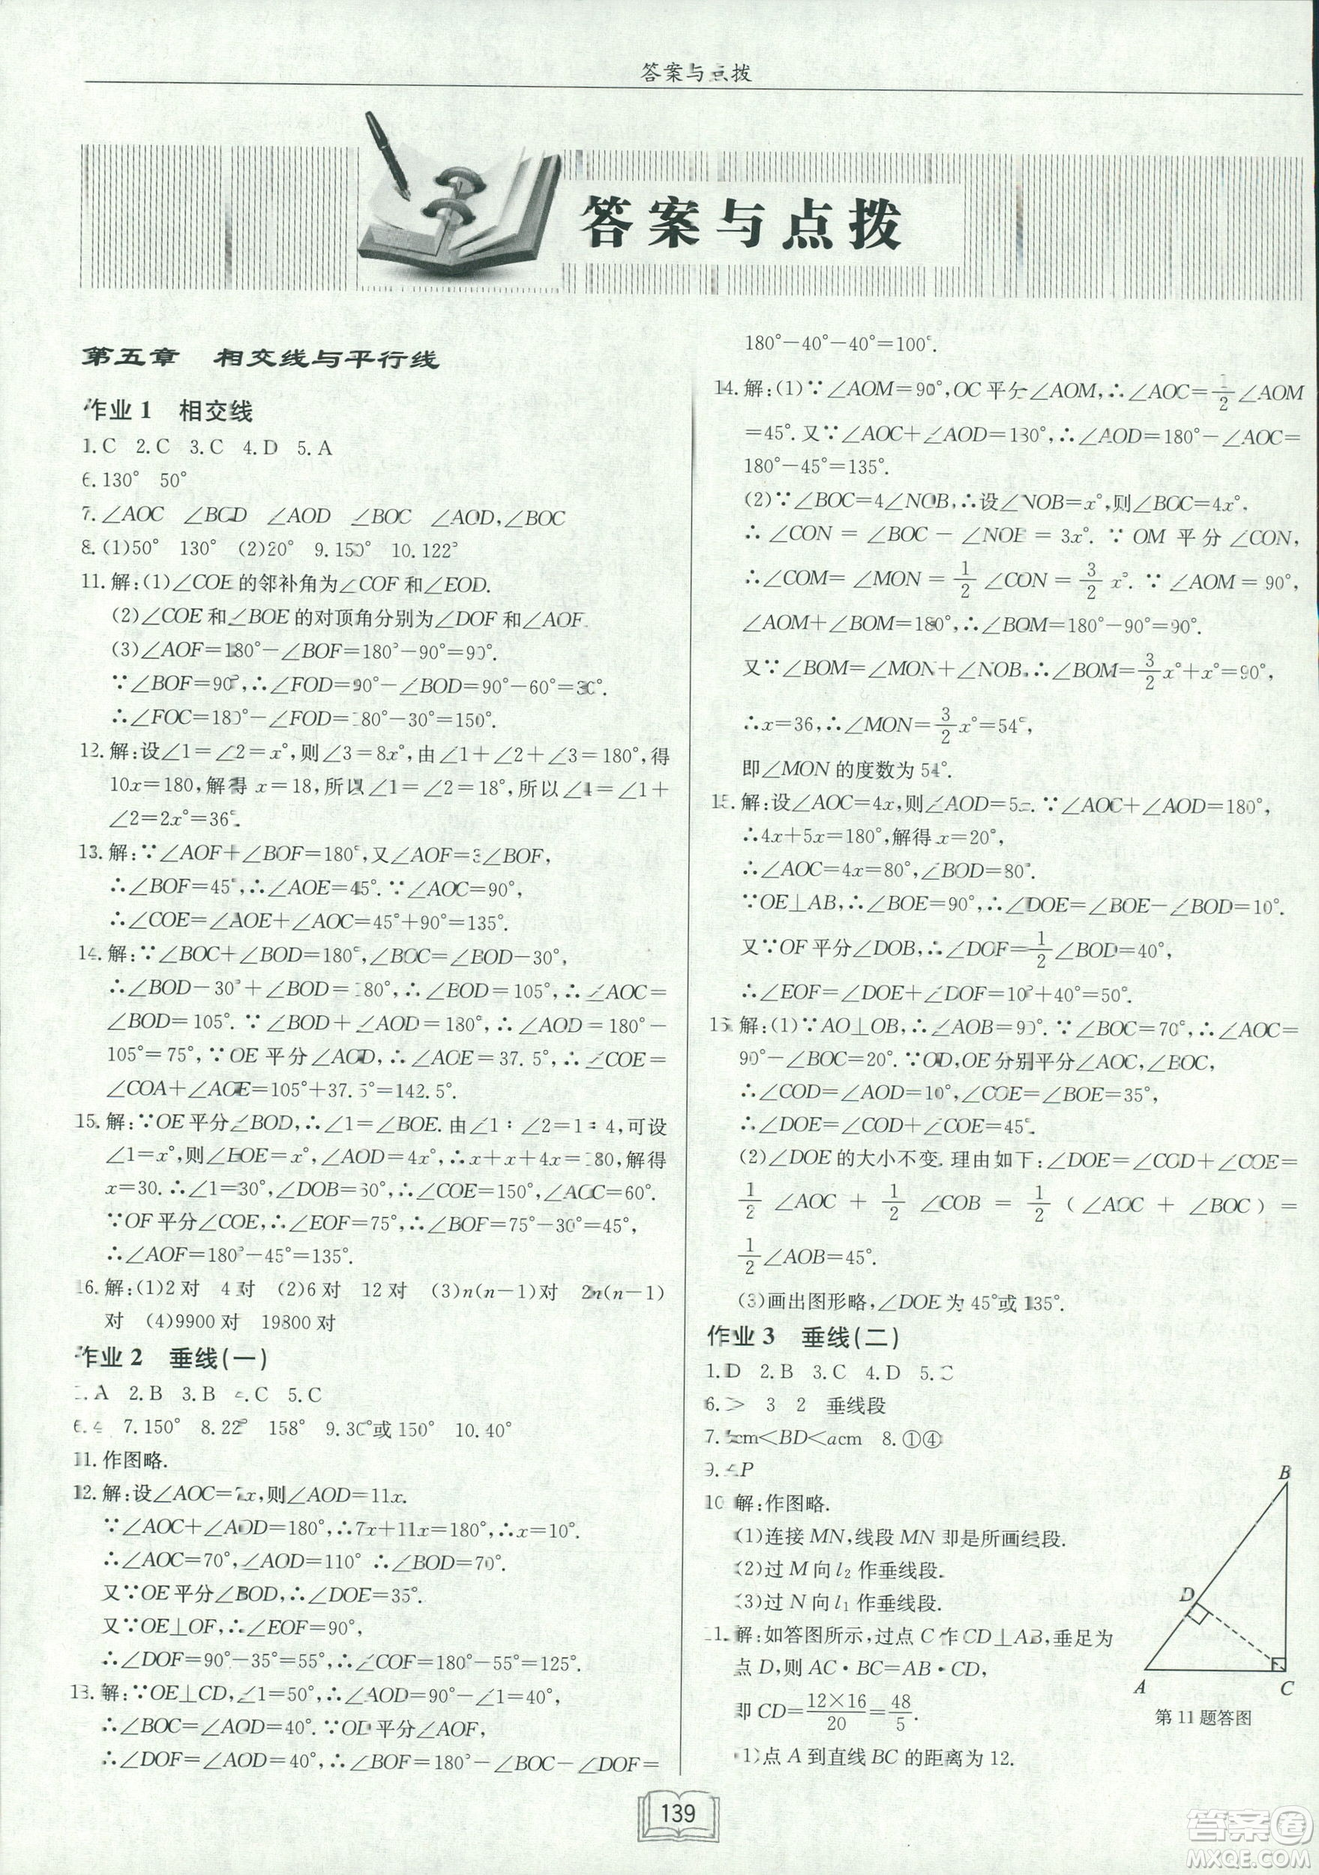 答案与点拨
答案与点拨
第五章 相交线与平行线
作业1 相交线
1.C 2.C 3.C 4.D 5.A
6.130° 50°
7.∠AOC ∠BOD ∠AOD ∠BOC ∠AOD,∠BOC
8.(1)50° 130° (2)20° 9.150° 10.122°
11.解:(1)∠COE的邻补角为∠COF和∠EOD.
(2)∠COE和∠BOE的对顶角分别为∠DOF和∠AOF
(3)∠AOF=180°-∠BOF=180°-90°=90°.
∵∠BOF=90°,∴∠FOD=90°-∠BOD=90°-60°=30°.
∴∠FOC=180°-∠FOD=180°-30°=150°.
12.解:设∠1=∠2=x°,则∠3=8x°,由∠1+∠2+∠3=180°,得
10x=180,解得 x=18,所以∠1=∠2=18°,所以∠1+
∠2=2x°=36°.
13.解:∵∠AOF+∠BOF=180°,又∠AOF=3∠BOF,
∴∠BOF=45°,∴∠AOE=45°.∵∠AOC=90°,
∴∠COE=∠AOE+∠AOC=45°+90°=135°.
14.解:∵∠BOC+∠BOD=180°,∠BOC=∠BOD-30°,
∴∠BOD-30°+∠BOD=180°,∴∠BOD=105°,∴∠AOC=
∠BOD=105°.∵∠BOD+∠AOD=180°,∴∠AOD=180°-
105°=75°,∵OE平分∠AOD,∴∠AOE=37.5°,∴∠COE=
∠COA+∠AOE=105°+37.5°=142.5°.
15.解:∵OE平分∠BOD,∴∠1=∠BOE.由∠1∶∠2=1∶4,可设
∠1=x°,则∠BOE=x°,∠AOD=4x°,∴x+x+4x=180,解得
x=30.∴∠1=30°,∠DOB=60°,∴∠COE=150°,∠AOC=60°.
∵OF平分∠COE,∴∠EOF=75°,∴∠BOF=75°-30°=45°,
∴∠AOF=180°-45°=135°.
16.解:(1)2对 4对 (2)6对 12对 (3)n(n-1)对 2n(n-1)
对 (4)9900对 19800对
作业2 垂线(一)
1.A 2.B 3.B 4.C 5.C
6.4 7.150° 8.22° 158° 9.30°或150° 10.40°
11.作图略.
12.解:设∠AOC=7x,则∠AOD=11x.
∵∠AOC+∠AOD=180°,∴7x+11x=180°,∴x=10°.
∴∠AOC=70°,∠AOD=110° ∴∠BOD=70°.
又∵OE平分∠BOD,∴∠DOE=35°.
又∵OE⊥OF,∴∠EOF=90°,
∴∠DOF=90°-35°=55°,∴∠COF=180°-55°=125°.
13.解:∵OE⊥CD,∠1=50°,∴∠AOD=90°-∠1=40°,
∴∠BOC=∠AOD=40°.∵OD平分∠AOF,
∴∠DOF=∠AOD=40°,∴∠BOF=180°-∠BOC-∠DOF=
180°-40°-40°=100°.
14.解:(1)∵∠AOM=90°,OC平分∠AOM,∴∠AOC=1/2∠AOM
=45°.又∵∠AOC+∠AOD=180°,∴∠AOD=180°-∠AOC=
180°-45°=135°.
(2)∵∠BOC=4∠NOB,∴设∠NOB=x°,则∠BOC=4x°.
∴∠CON=∠BOC-∠NOB=3x°.∵OM平分∠CON,
∴∠COM=∠MON=1/2∠CON=3/2x°.∵∠AOM=90°,
∠AOM+∠BOM=180°,∴∠BOM=180°-90°=90°.
又∵∠BOM=∠MON+∠NOB,∴∠BOM=3/2x°+x°=90°,
∴x=36,∴∠MON=3/2x°=54°,
即∠MON的度数为54°.
15.解:设∠AOC=4x,则∠AOD=5x.∵∠AOC+∠AOD=180°,
∴4x+5x=180°,解得x=20°,
∴∠AOC=4x=80°,∠BOD=80°.
∵OE⊥AB,∴∠BOE=90°,∴∠DOE=∠BOE-∠BOD=10°.
又∵OF平分∠DOB,∴∠DOF=1/2∠BOD=40°,
∴∠EOF=∠DOE+∠DOF=10°+40°=50°.
16.解:(1)∵AO⊥OB,∴∠AOB=90°.∵∠BOC=70°,∴∠AOC=
90°-∠BOC=20°.∵OD,OE分别平分∠AOC,∠BOC,
∴∠COD=∠AOD=10°,∠COE=∠BOE=35°,
∴∠DOE=∠COD+∠COE=45°.
(2)∠DOE的大小不变.理由如下:∠DOE=∠COD+∠COE=
1/2∠AOC+1/2∠COB=1/2(∠AOC+∠BOC)=
1/2∠AOB=45°.
(3)画出图形略,∠DOE为45°或135°.
作业3 垂线(二)
1.D 2.B 3.C 4.D 5.C
6.> 3 2 垂线段
7.bcm<BD<acm 8.①④
9.4 P
10.解:作图略.
(1)连接MN,线段MN即是所画线段.
(2)过M向l₂作垂线段.
(3)过N向l₁作垂线段.
11.解:如答图所示,过点C作CD⊥AB,垂足为
点D,则AC·BC=AB·CD,
即CD=12×16/20=48/5.
(1)点A到直线BC的距离为12.
B
D
A
C
第11题答图
139
答案圈
MXQE.COM